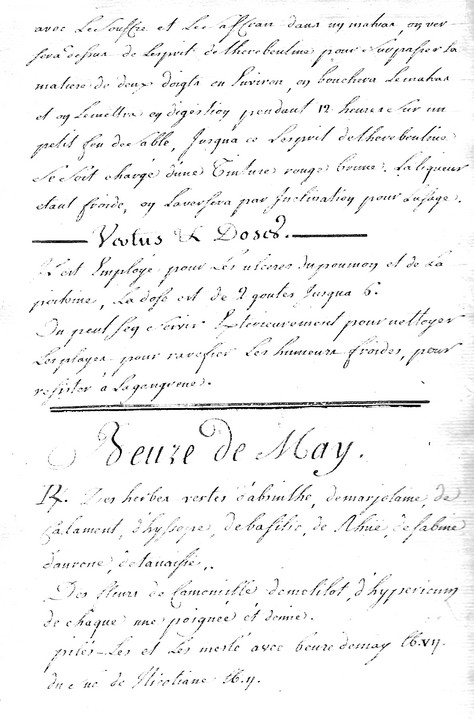 avec Le souffre et Le saffran dans un matras on ver
sera dessus de Lesprit de therebentine pour surpasser La
matiere de deux doigts en Environ, on bouchera Le matras
et on Le mettra en digestion pendant 12 heures sur un
petit feu de sable, Jusqua ce Lesprit de therebentine
Se soit chargé d'une Tinture rouge brune. La liqueur
étant froide, on La versera par Inclination pour Lusage.
Vertus & Doses.
Il est Employé pour Les ulceres du poumon et de La
poitrine, La dose est de 2 goutes Jusqua 6.
On peut s'en servir Exterieurement pour nettoyer
Les playes pour rarefier Les humeurs froides, pour
ressister à La gangrene.
Beure de May.
℞. Des herbes vertes d'abinthe, de marjolaine, de
Calament, d'hyssope, de basilic, de Rhüe, de sabine
d'aurone, de tanaisie,.
Des fleurs de Camomille de melilot, d'hypericum
de chaque une poignée et demie.
pilés-Les et Les meslé avec beure de may ℔.vij.
du suc de Nicotiane ℔.ij.